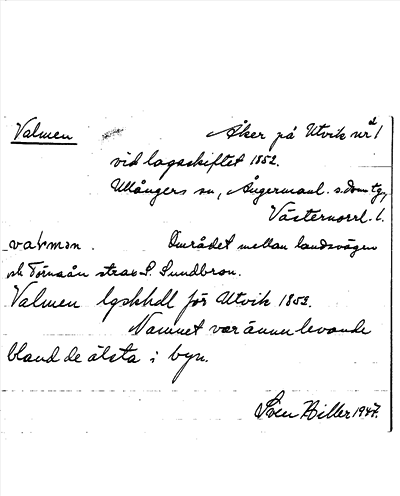 Valmen Åker på Utvik nr 1
vid lagaskiftet 1852.
Ullångers sn, Ångermanl. s. domtg,
Västernorrl. l.
valmən. Området mellan landsvägen
och Tornaån strax S. Sundbron.
Valmen lgskhdl för Utvik 1852.
Namnet var ännu levande
bland de älsta i byn.
Sven Hiller 1947.